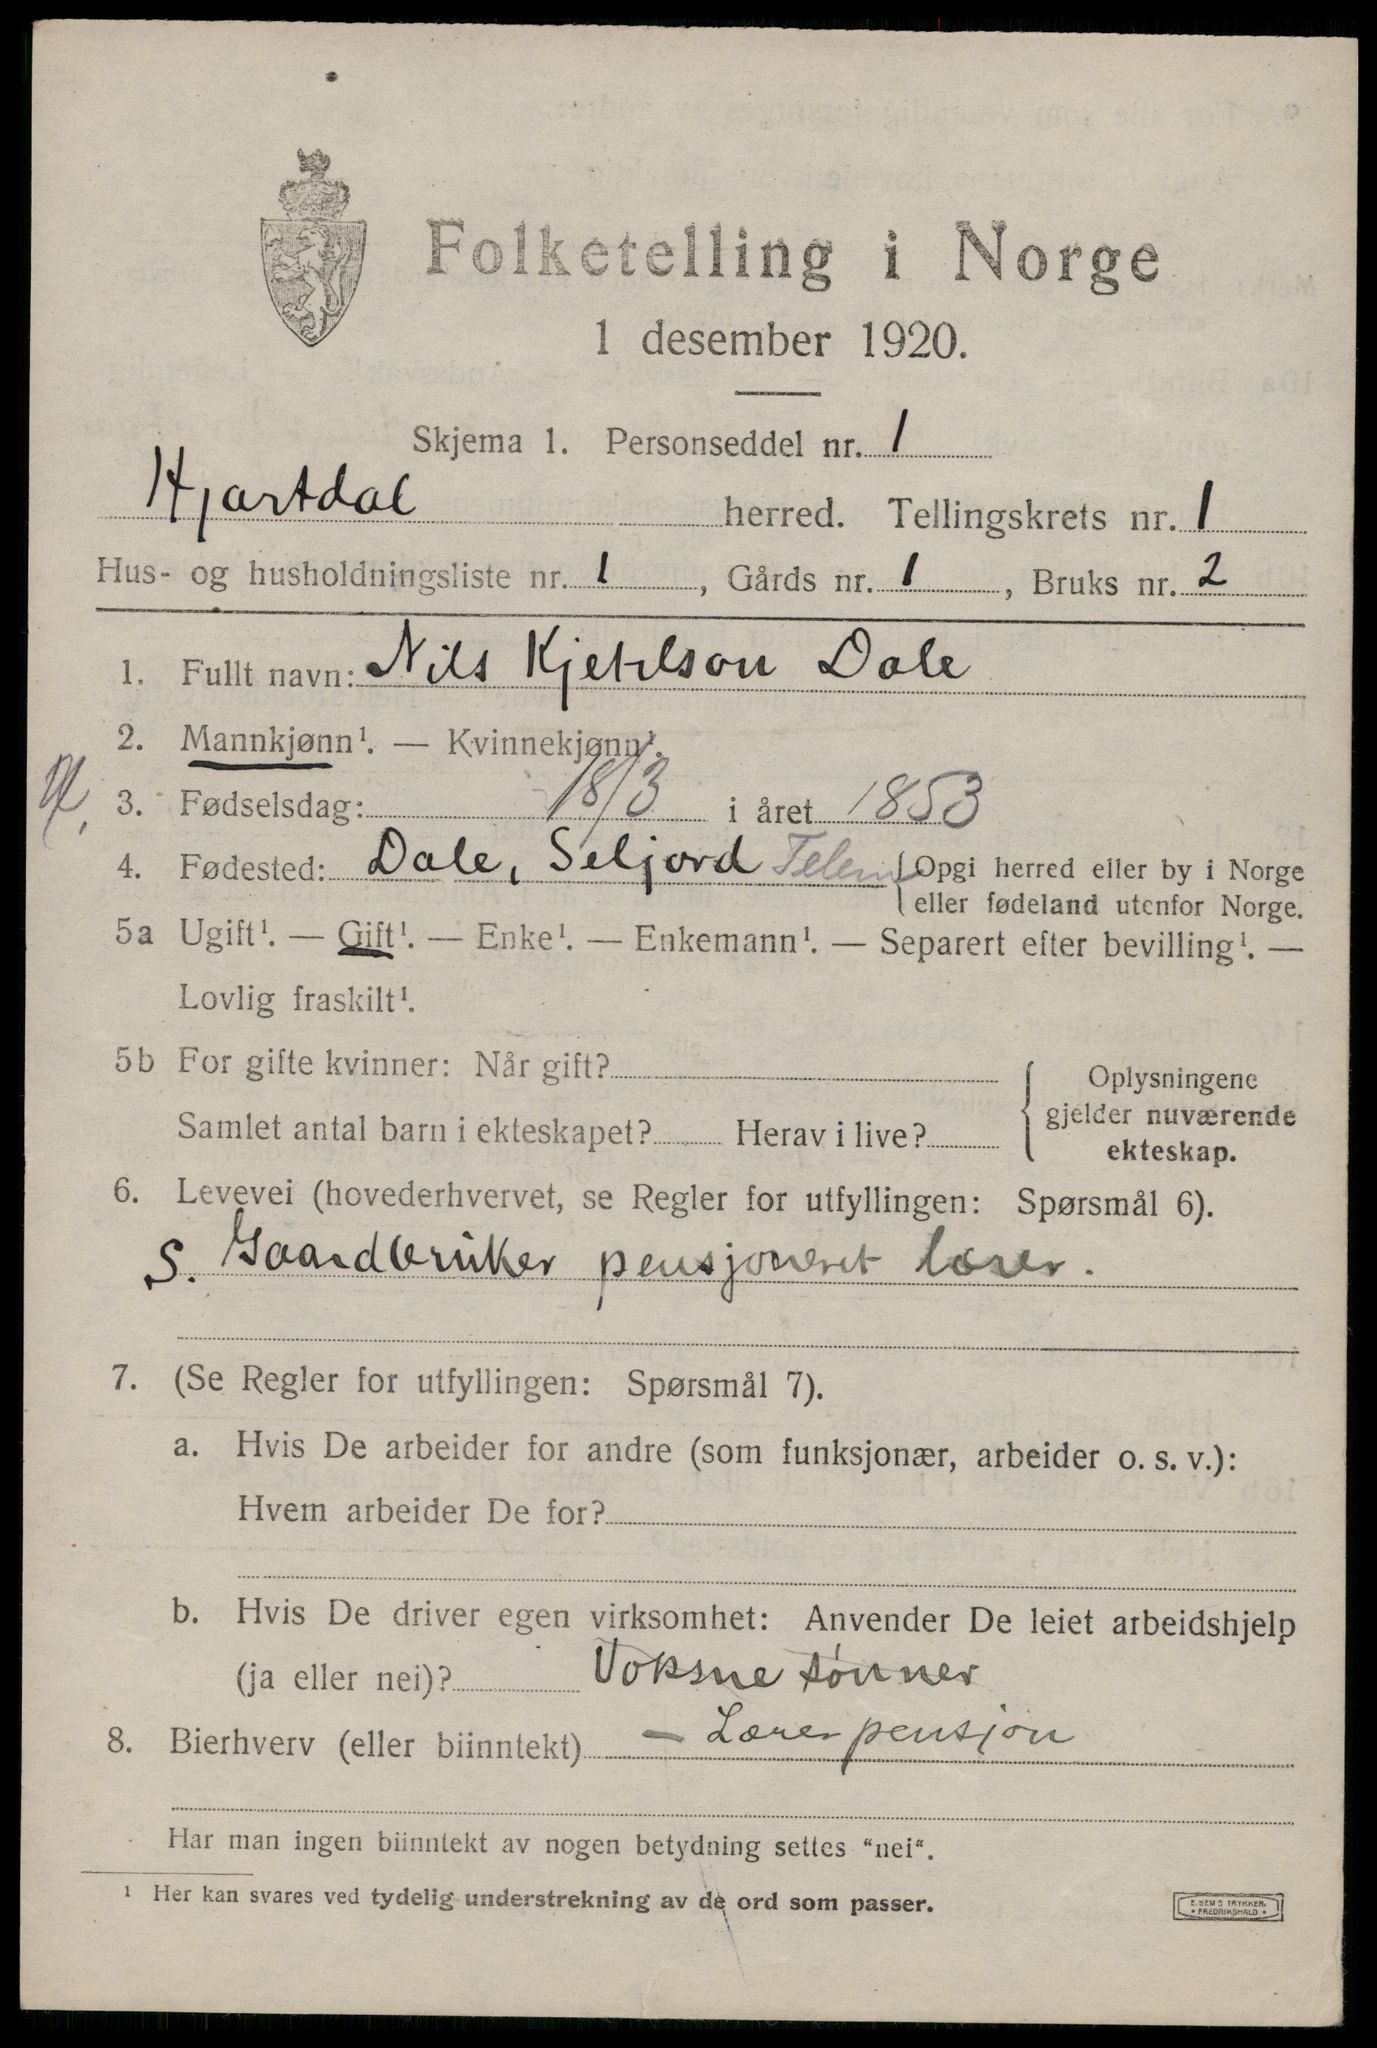 Folketelling i Norge
1 desember 1920.
Skjema 1. Personseddel nr. 1
Hjartdal herred. Tellingskrets nr. 1
Hus- og husholdningsliste nr. 1, Gårds nr. 1, Bruks nr. 2
1. Fullt navn: Nils Kjetilson Dale
2. Mannkjønn¹. — Kvinnekjønn¹.
3. Fødselsdag: 18/3 i året 1853
4. Fødested: Dale, Seljord Telem {Opgi herred eller by i Norge
eller fødeland utenfor Norge.
5a Ugift¹. — Gift¹. — Enke¹. — Enkemann¹. — Separert efter bevilling¹. —
Lovlig fraskilt¹.
5b For gifte kvinner: Når gift?
Samlet antal barn i ekteskapet? Herav i live?
Oplysningene
gjelder nuværende
ekteskap.
6. Levevei (hovederhvervet, se Regler for utfyllingen: Spørsmål 6).
S. Gaardbruker pensjoneret lærer.
7. (Se Regler for utfyllingen: Spørsmål 7).
a. Hvis De arbeider for andre (som funksjonær, arbeider o. s. v.):
Hvem arbeider De for?
b. Hvis De driver egen virksomhet: Anvender De leiet arbeidshjelp
(ja eller nei)? Voksne sønner
8. Bierhverv (eller biinntekt) — Lærerpensjon
Har man ingen biinntekt av nogen betydning settes "nei".
¹ Her kan svares ved tydelig understrekning av de ord som passer.
E. SEM'S TRYKKER.
* FREDRIKSHALD *